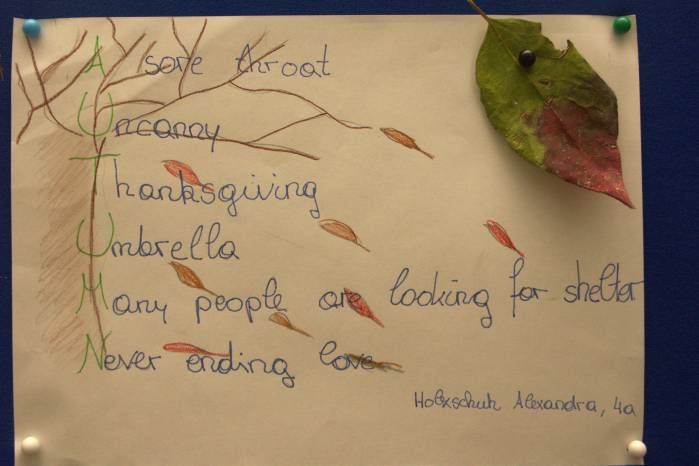 A sore throat
Uncanny
Thanksgiving
Umbrella
Many people are looking for shelter
Never ending love
Holxschuh Alexandra, 4a